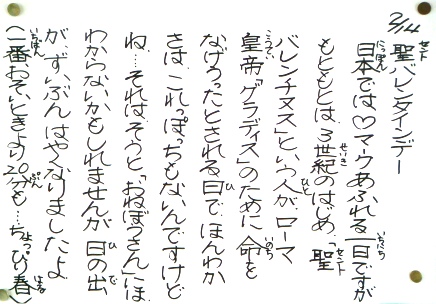 2/14
セント
聖バレンタインデー
にっぽん いちにち
日本では♡マークあふれる一日ですが
せいき セント
もともとは、3世紀のはじめ、「聖
ひと
バレンチヌス」という人が、ローマ
こうてい いのち
皇帝「グラディス」のために命を
ひ
なげうったとされる日で、ほんわか
さは、これっぽっちもないんですけど
ね…それは、そうと「おねぼうさん」には、
ひ で
わからないかもしれませんが、日の出
が、ずいぶんはやくなりましたよ
いちばん ぷん はる
(一番おそいときより20分も…ちょっぴり春)